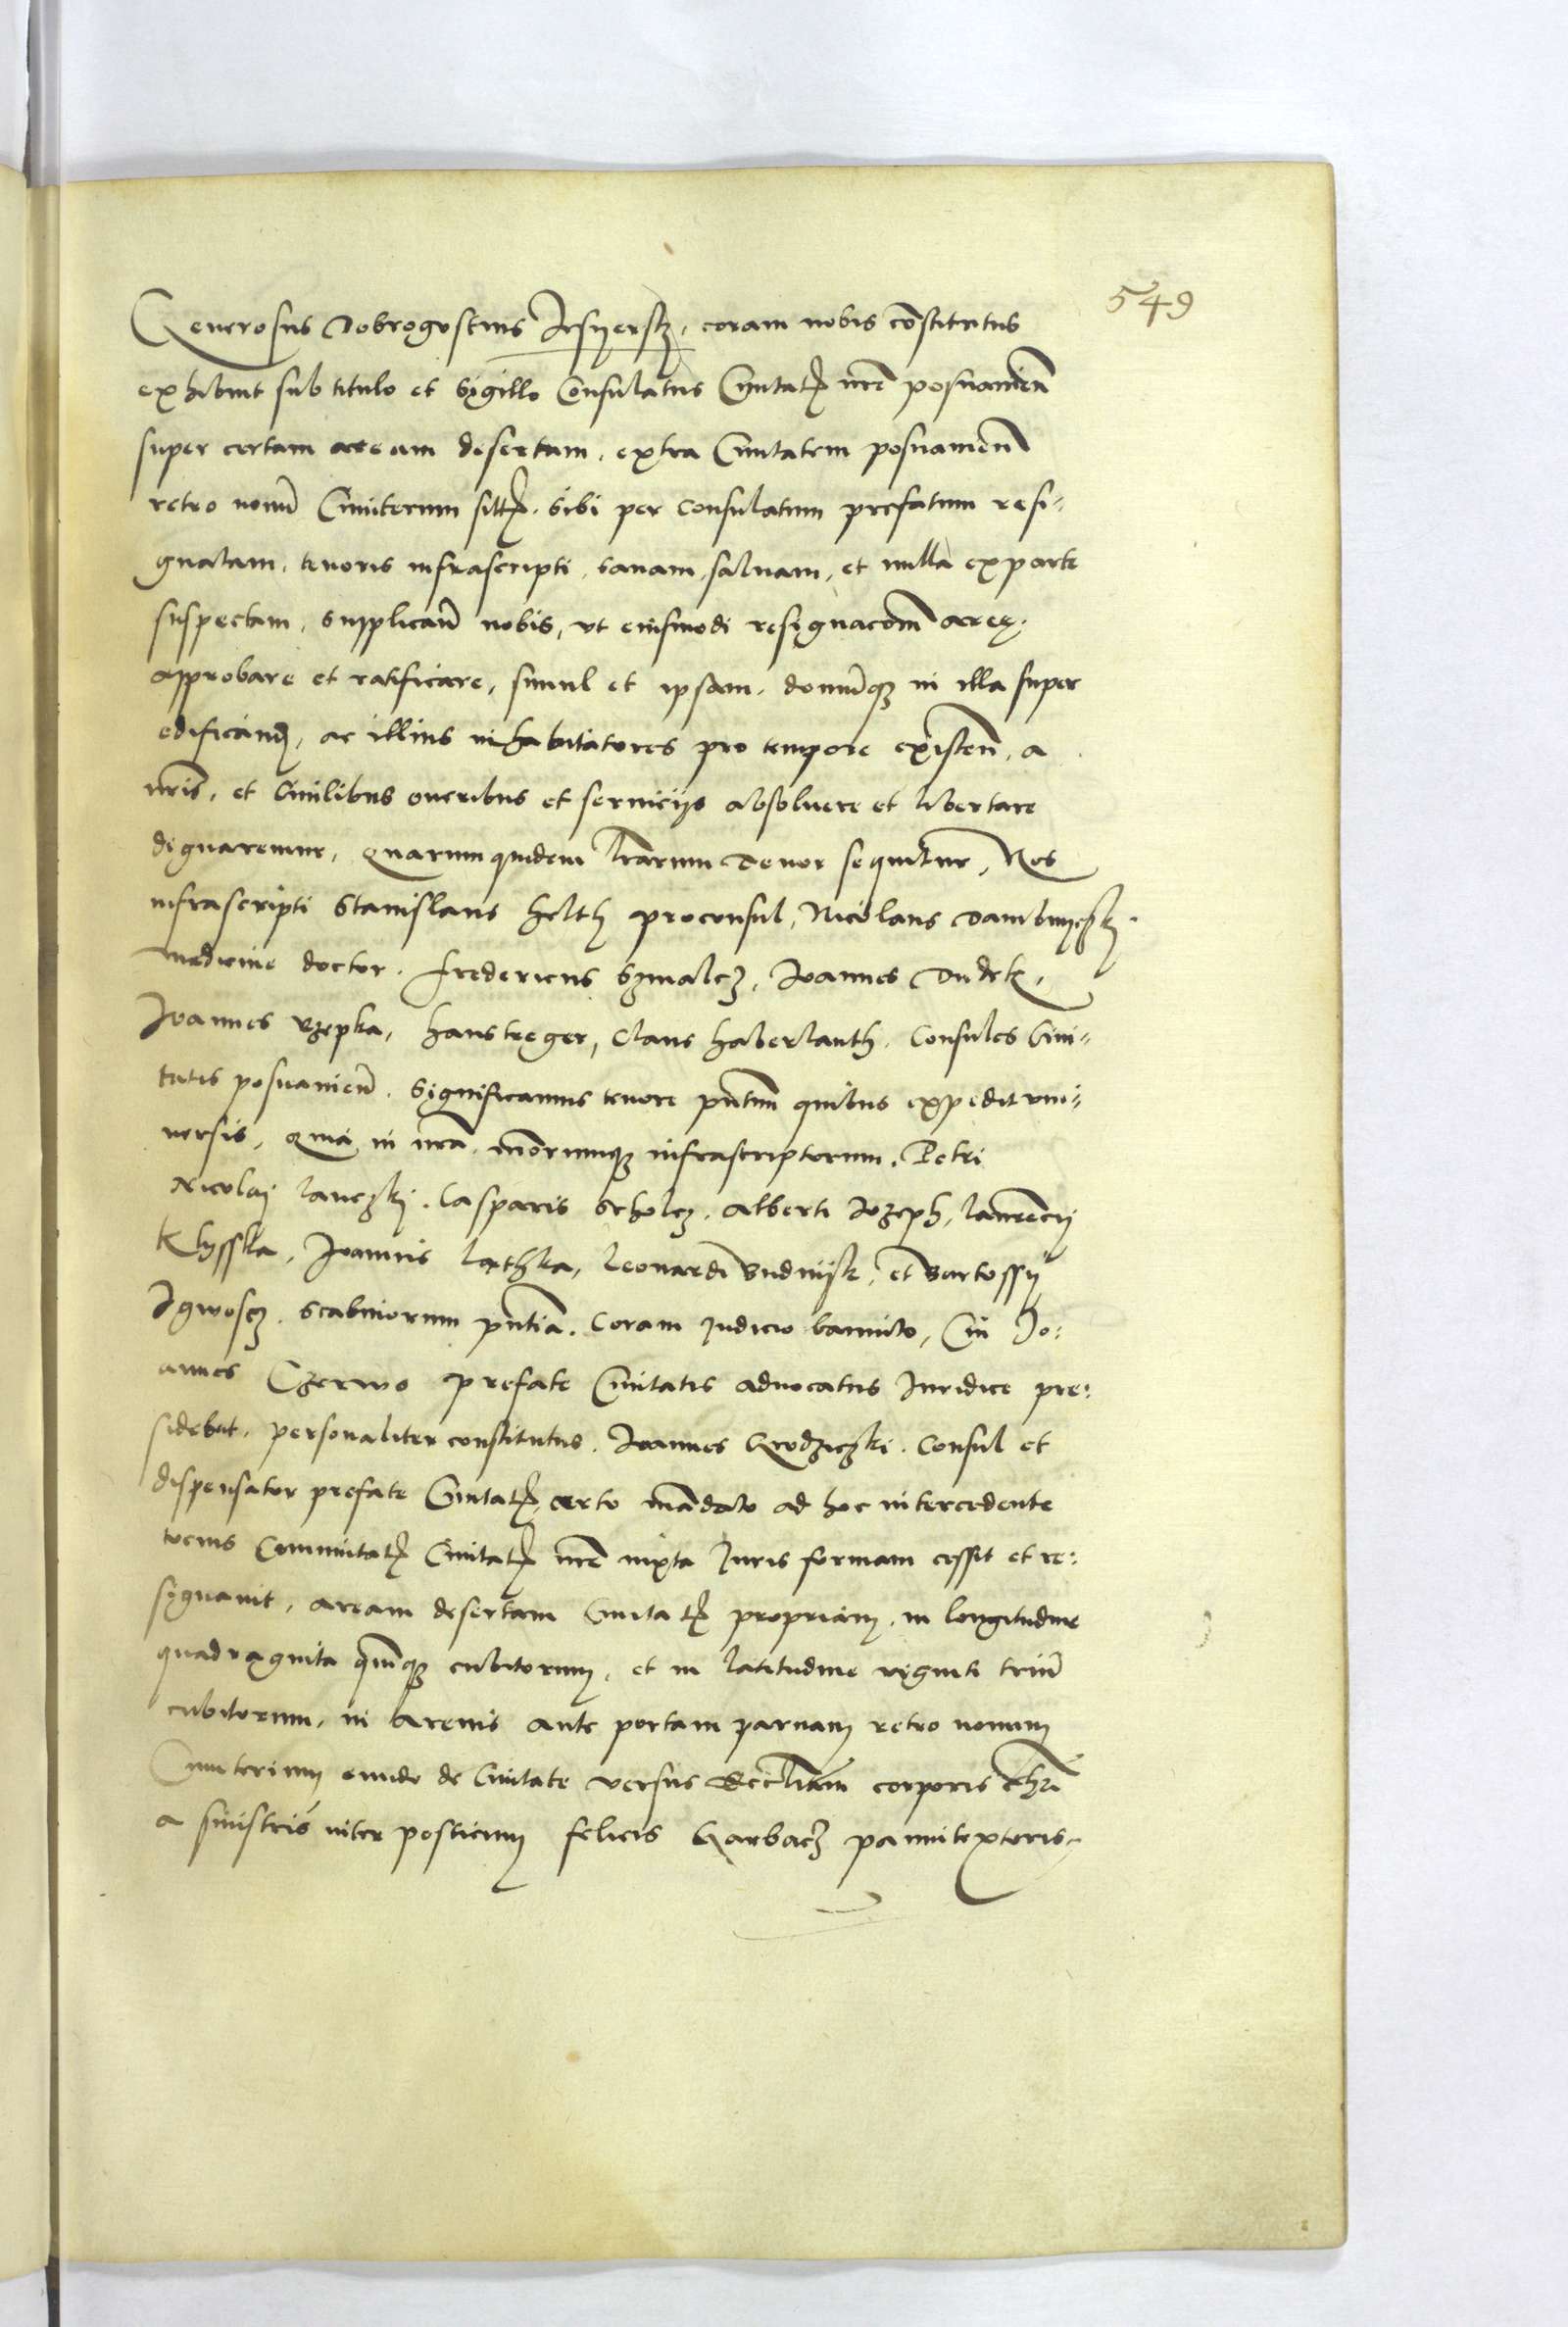 549
Generosus Dobrogostius Jesyerskj, coram nobis constitutus
exhibuit sub titulo et sigillo Consulatus Ciuitatis nre posnanien
super certam aream desertam, extra Ciuitatem posnanien
retro nouu Cimiterum sitt. sibi per consulatum prefatum resi-
gnatam, tenoris infrascripti, sanam, saluam, et nulla ex parte
suspectam, supplicans nobis, vt eiusmodi resignacom aree,
approbare et ratificare, simul et ipsam, domumq in illa super
edificand, ac illius inhabitatores pro tempore existen, a
nris, et Ciuilibus oneribus et seruicijs absoluere et libertare
dignaremur, Quarum quidem lrarum Tenor sequitur, Nos
infrascripti Stanislaus helth proconsul, Nicolaus Dambnyczkj
medicine doctor, Fredericus Szmalcz, Joannes Dudek,
Joannes Rzepka, Hans kreger, Claus haberlanth, Consules Ciui-
tatis posnanien. Significamus tenore pntim quibus expedit vni-
uersis, Quia in nra, nrorumq infrascriptorum, Petri
Nicolai lanczkj, Casparis Scholcz, Alberti Jozeph, laurencij
Klysska, Joannis lathka, leonardi Budnijk, et Bartossij
Igwoscz, Scabinorum pntia. Coram Judicio bannito, Cui Jo-
annes Czerwo prefate Ciuitatis aduocatus Juridice pre-
sidebat, personaliter constitutus, Joannes Grodziczki, Consul et
dispensator prefate Ciuitatis, certo mandato ad hoc intercedente
tocius Communitatis Ciuitatis nre iuxta Juris formam cessit et re-
signauit, aream desertam Ciuitatis propriam, in longitudine
quadraginta quinq cubitorum, et in latitudine viginti trium
cubitorum, in Arenis ante portam paruam retro nouum
Cimiterium eundo de Ciuitate versus Eccliam corporis Chri
a sinistris inter posticum felicis Garbacz pannitextoris